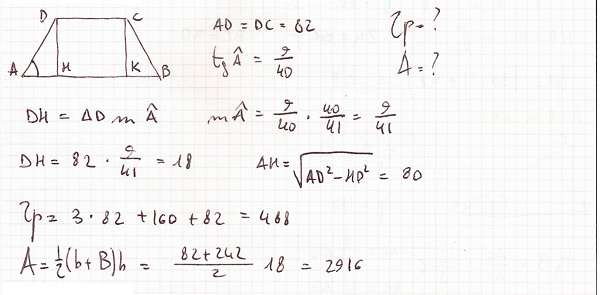 D C
A H K B
AD = DC = 82
tg Â = 9/40
2p = ?
A = ?
DH = AD sin Â
sin Â = 9/40 · 40/41 = 9/41
DH = 82 · 9/41 = 18
AH = √(AD² - HD²) = 80
2p = 3 · 82 + 160 + 82 = 488
A = 1/2 (b + B) h = (82 + 242)/2 18 = 2916